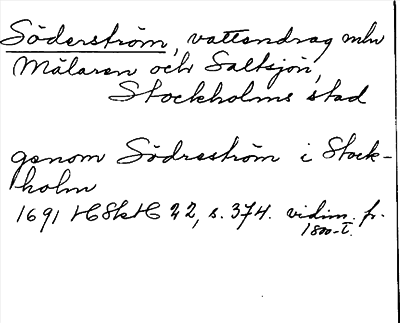 Söderström, vattendrag mlw
Mälaren och Saltsjön,
Stockholms stad
genom Södreström i Stock-
holm
1691 HSkH 22, s. 374. vidim. fr.
1800-t.